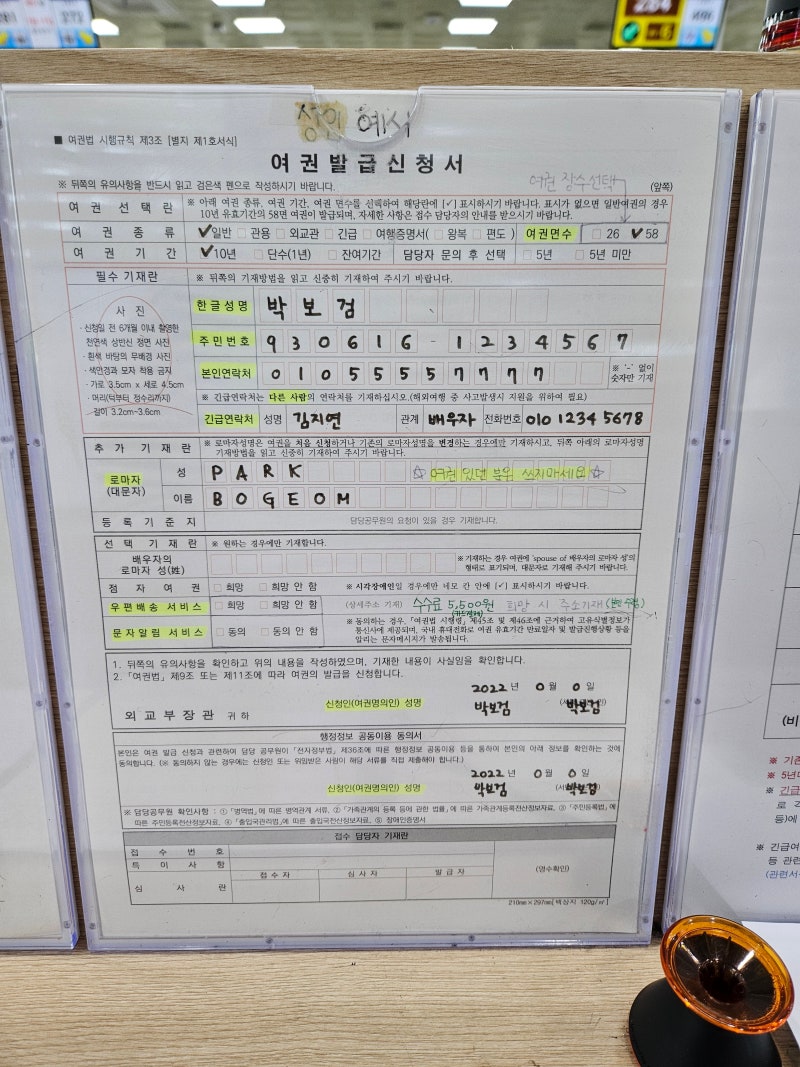 281 272
284
성인 예시
■ 여권법 시행규칙 제3조 [별지 제1호서식]
여권발급신청서
여권 장수선택
※ 뒤쪽의 유의사항을 반드시 읽고 검은색 펜으로 작성하시기 바랍니다. (앞쪽)
여 권 선 택 란 ※ 아래 여권 종류, 여권 기간, 여권 면수를 선택하여 해당란에 [✓] 표시하시기 바랍니다. 표시가 없으면 일반여권의 경우
10년 유효기간의 58면 여권이 발급되며, 자세한 사항은 접수 담당자의 안내를 받으시기 바랍니다.
여 권 종 류 ✓일반 □ 관용 □ 외교관 □ 긴급 □ 여행증명서( □ 왕복 □ 편도 ) 여권면수 □ 26 ✓ 58
여 권 기 간 ✓10년 □ 단수(1년) □ 잔여기간 담당자 문의 후 선택 □ 5년 □ 5년 미만
필수 기재란 ※ 뒤쪽의 기재방법을 읽고 신중히 기재하여 주시기 바랍니다.
사 진
· 신청일 전 6개월 이내 촬영한
천연색 상반신 정면 사진
· 흰색 바탕의 무배경 사진
· 색안경과 모자 착용 금지
· 가로 3.5cm x 세로 4.5cm
· 머리(턱부터 정수리까지)
길이 3.2cm~3.6cm
한글성명 박 보 검
주민번호 9 3 0 6 1 6 - 1 2 3 4 5 6 7
본인연락처 0 1 0 5 5 5 5 7 7 7 7 ※ '-' 없이
숫자만 기재
※ 긴급연락처는 다른 사람의 연락처를 기재하십시오.(해외여행 중 사고발생시 지원을 위하여 필요)
긴급연락처 성명 김지연 관계 배우자 전화번호 010 1234 5678
추 가 기 재 란 ※ 로마자성명은 여권을 처음 신청하거나 기존의 로마자성명을 변경하는 경우에만 기재하시고, 뒤쪽 아래의 로마자성명
기재방법을 읽고 신중히 기재하여 주시기 바랍니다.
로마자
(대문자)
성 P A R K ☆ 여권 있던 분은 쓰지마세요 ☆
이름 B O G E O M
등 록 기 준 지 담당공무원의 요청이 있을 경우 기재합니다.
선 택 기 재 란 ※ 원하는 경우에만 기재합니다.
배우자의
로마자 성(姓)
※ 기재하는 경우 여권에 'spouse of 배우자의 로마자 성'의
형태로 표기되며, 대문자로 기재해 주시기 바랍니다.
점 자 여 권 □ 희망 □ 희망 안 함 ※ 시각장애인일 경우에만 네모 칸 안에 [✓] 표시하시기 바랍니다.
우편배송 서비스 □ 희망 □ 희망 안 함 (상세주소 기재) 수수료 5,500원 희망 시 주소기재
(카드결제)
문자알림 서비스 □ 동의 □ 동의 안 함 ※ 동의하는 경우, 「여권법 시행령」 제45조 및 제46조에 근거하여 고유식별정보가
통신사에 제공되며, 국내 휴대전화로 여권 유효기간 만료일자 및 발급진행상황 등을
알리는 문자메시지가 발송됩니다.
1. 뒤쪽의 유의사항을 확인하고 위의 내용을 작성하였으며, 기재한 내용이 사실임을 확인합니다.
2. 「여권법」 제9조 또는 제11조에 따라 여권의 발급을 신청합니다.
2022 년 0 월 0 일
신청인(여권명의인) 성명 박보검 박보검
외 교 부 장 관 귀 하
행정정보 공동이용 동의서
본인은 여권 발급 신청과 관련하여 담당 공무원이 「전자정부법」 제36조에 따른 행정정보 공동이용 등을 통하여 본인의 아래 정보를 확인하는 것에
동의합니다. (※ 동의하지 않는 경우에는 신청인 또는 위임받은 사람이 해당 서류를 직접 제출해야 합니다.)
2022 년 0 월 0 일
신청인(여권명의인) 성명 박보검 박보검
※ 담당공무원 확인사항 : ① 「병역법」에 따른 병역관계 서류, ② 「가족관계의 등록 등에 관한 법률」에 따른 가족관계등록전산정보자료, ③ 「주민등록법」에
따른 주민등록전산정보자료, ④ 「출입국관리법」에 따른 출입국전산정보자료, ⑤ 장애인증명서
접수 담당자 기재란
접 수 번 호
특 이 사 항
심 사 란
접 수 자 심 사 자 발 급 자
(영수확인)
210㎜×297㎜[백상지 120g/㎡]
(비
※ 기존
※ 5년미
※ 긴급
로 각
등)에
※ 긴급여
등 관련
(관련서